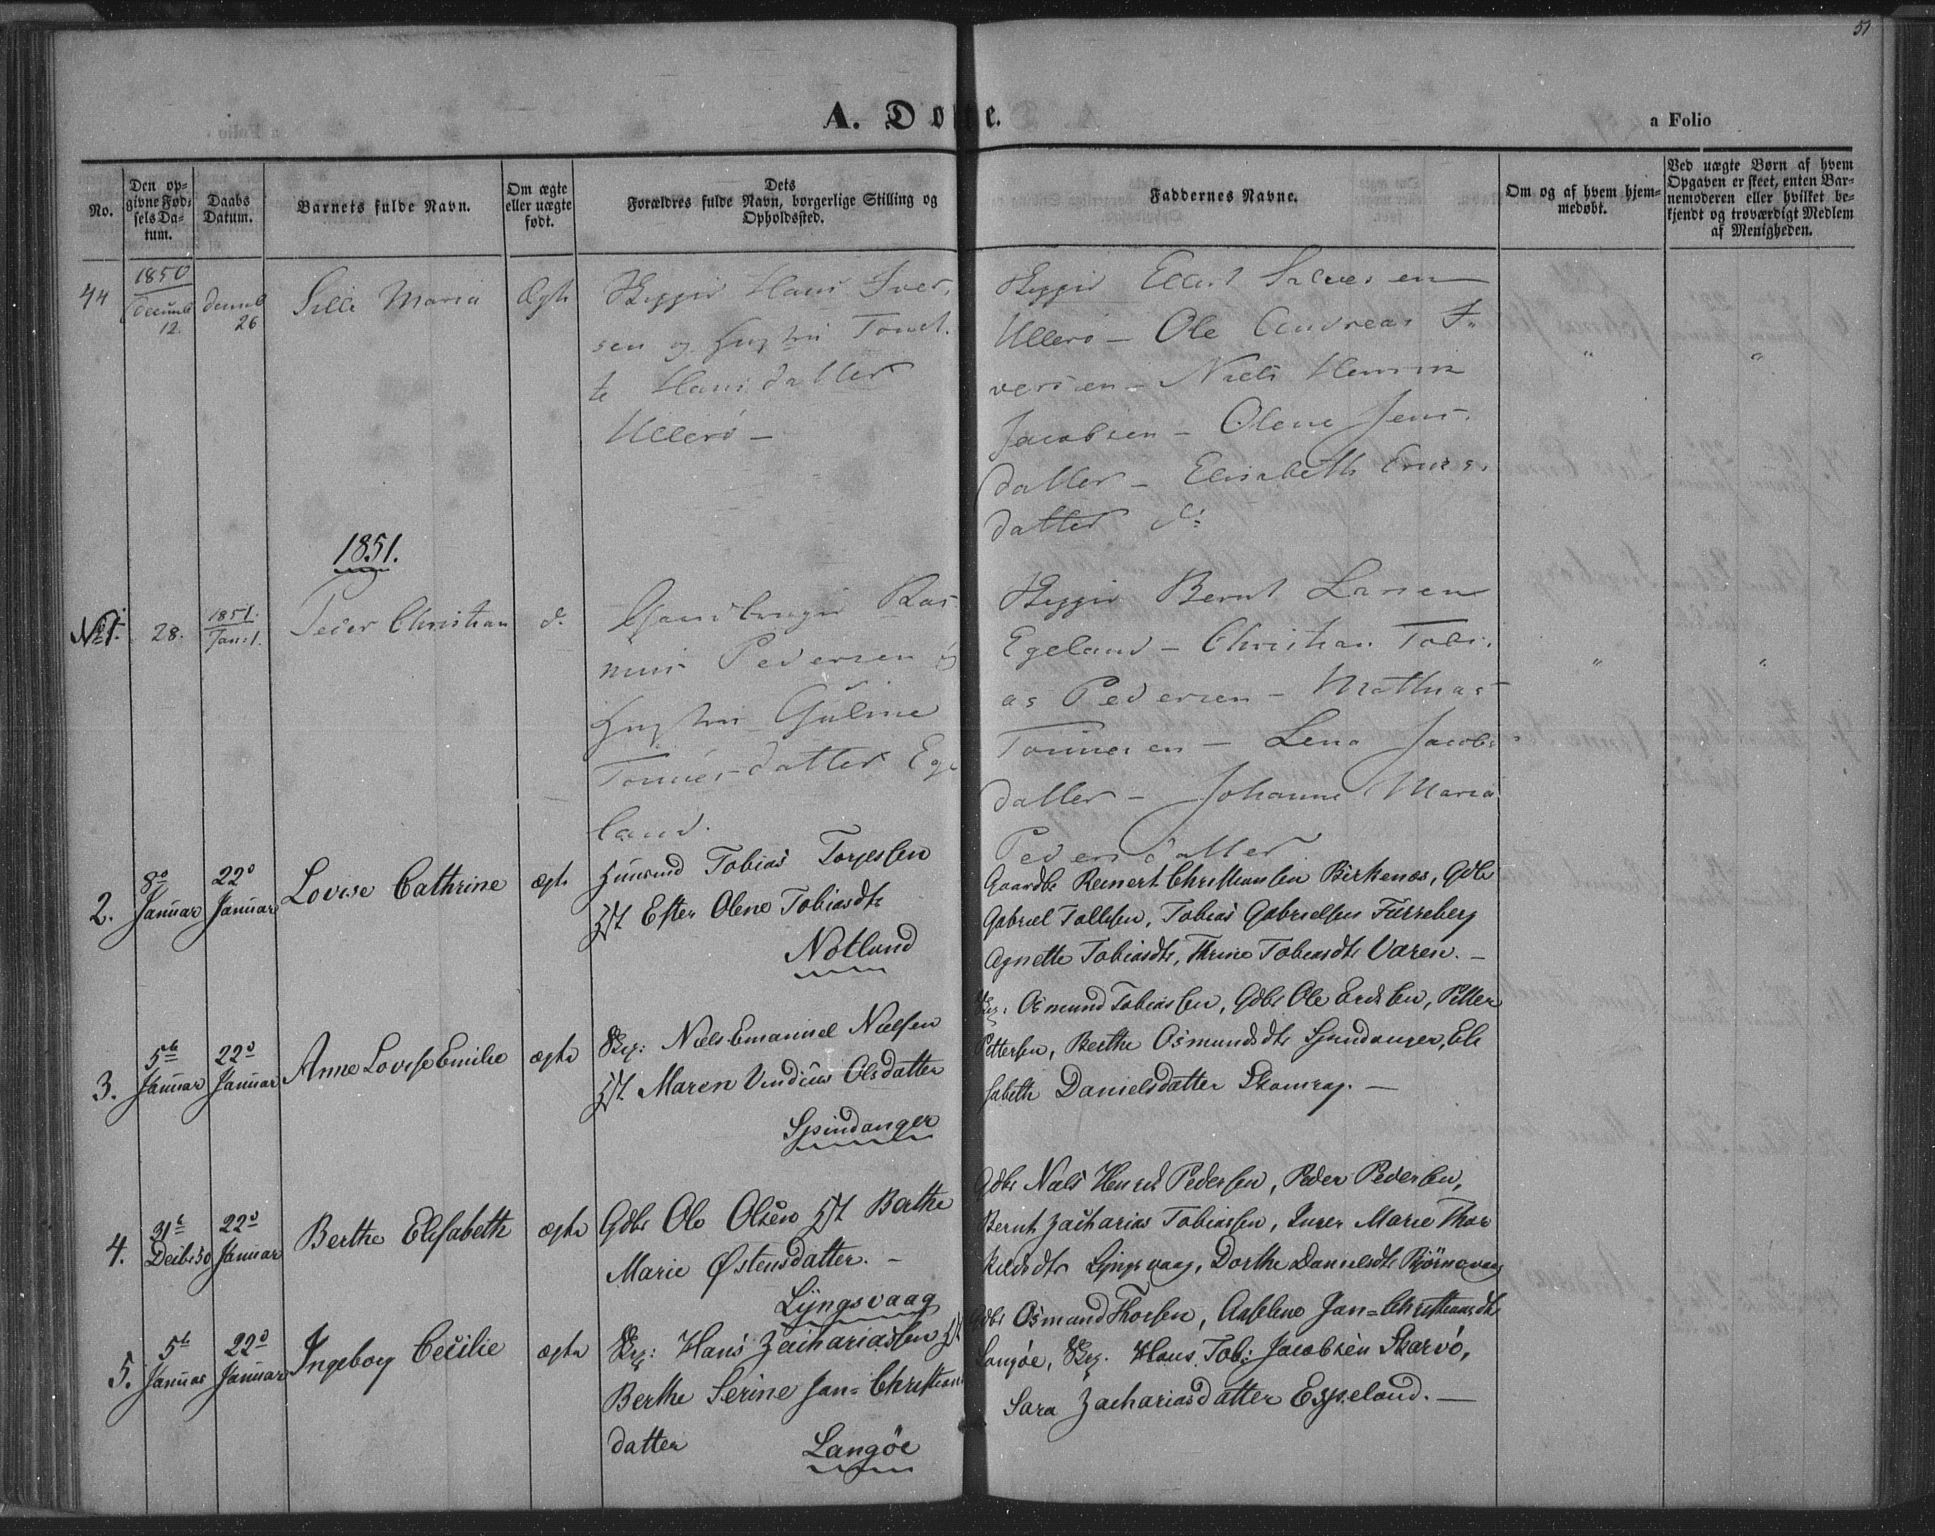 51
A. Døbte.
a Folio
No.
Den op-
givne Fød-
sels Da-
tum.
Daabs
Datum.
Barnets fulde Navn.
Om ægte
eller uægte
født.
Dets
Forældres fulde Navn, borgerlige Stilling og
Opholdssted.
Faddernes Navne.
Om og af hvem hjem-
medøbt.
Ved uægte Børn af hvem
Opgaven er skeet, enten Bar-
nemoderen eller hvilket be-
kjendt og troværdigt Medlem
af Menigheden.
44
1850
Decemb
12.
Decemb
26
Silli Maria
Ægte
Hans Iver
sen og Hustru Tonet
te Hansdatter
Ullerø -
Salvesen
Ullerø - Ole Andreas I
versen - Niels Henrik
Jacobsen - Olene Jens
datter - Elisabeth
datter
1851.
No 1.
28.
1851.
Jan: 1.
Peder Christian
d.
Gaardbruger Ras
mus Pedersen og
Hustru Guline
Tønnesdatter Ege
land.
Bernt Larsen
Egeland - Christian Tobi
as Pedersen - Mathias
Tønnesen - Lena Jacobs
datter - Johanne Maria
Pedersdatter
2.
8de
Januar
22d
Januar
Lovise Cathrine
ægte
Huusmd Tobias Torjessen
Hst Ester Olene Tobiasdtr
Notland
Gaardbr Reinert Christiansen Birkenæs, Gdbr
Gabriel Tollefsen, Tobias Gabrielsen
Agnethe Tobiasdtr, Thrine Tobiasdtr Varen. -
3.
5te
Januar
22d
Januar
Anne Lovise Emilie
ægte
Niels Emanuel Nielsen
Hst Maren Olsdatter
Spindanger
Osmund Tobiassen, Gdbr Ole Ericksen, Petter
Pettersen, Berthe Osmundsdtr Spindanger, Eli
sabeth Danielsdatter -
4.
31te
Decbr 50
22d
Januar
Berthe Elisabeth
ægte
Gdbr Ole Olsen Hst Berthe
Marie Østensdatter. -
Lyngsvaag
Gdbr Niels Henrik Pedersen, Peder Pedersen,
Bernt Zacharias Tobiassen, Inger Marie Thor
kildsdtr Lyngsvaag, Dorthe Danielsdtr Bjørnevaag
5.
5te
Januar
22d
Januar
Ingeborg Cecilie
ægte
Hans Zachariassen Hst
Berthe Serine Jan= Christians
datter
Langøe
Gdbr Osmund Thorsen, Anselene Jan=Christiansdtr
Langøe, Hans Tob: Jacobsen Skarvø,
Sara Zachariasdatter Espeland. -